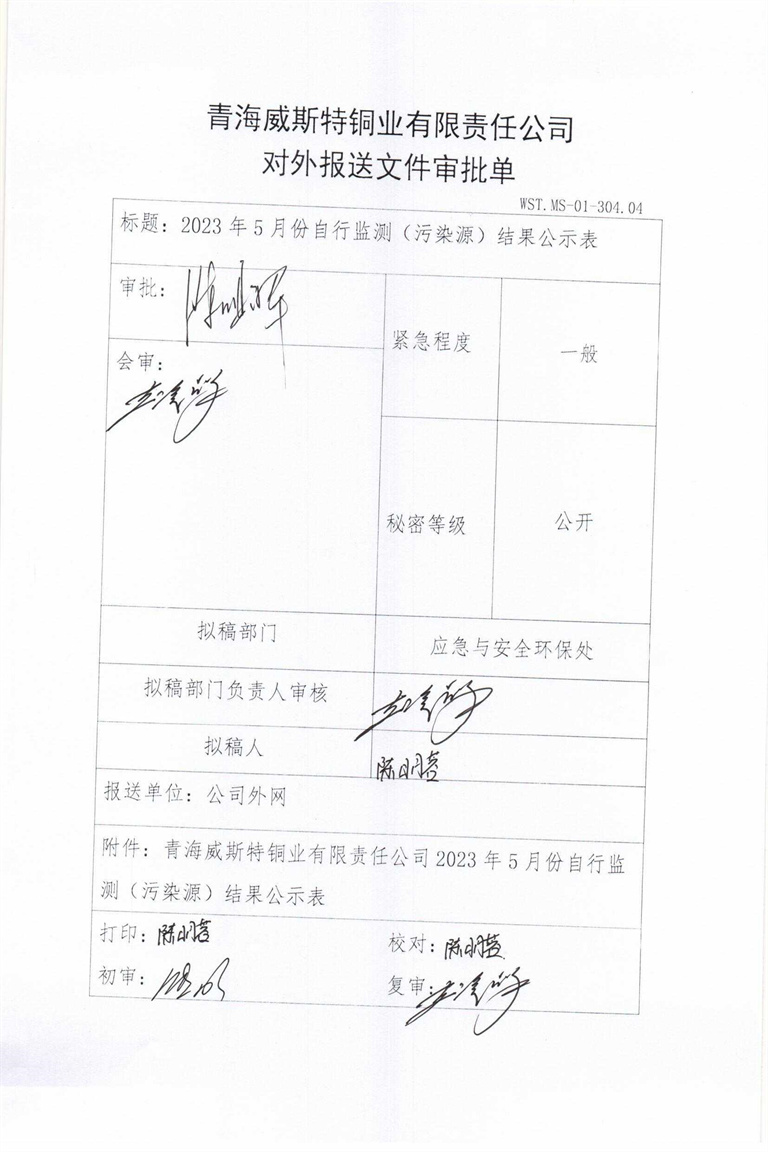 青海威斯特铜业有限责任公司
对外报送文件审批单
WST.MS-01-304.04
标题：2023年5月份自行监测（污染源）结果公示表
审批：
紧急程度
一般
会审：
秘密等级
公开
拟稿部门
应急与安全环保处
拟稿部门负责人审核
拟稿人
报送单位：公司外网
附件：青海威斯特铜业有限责任公司2023年5月份自行监
测（污染源）结果公示表
打印：
校对：
初审：
复审：